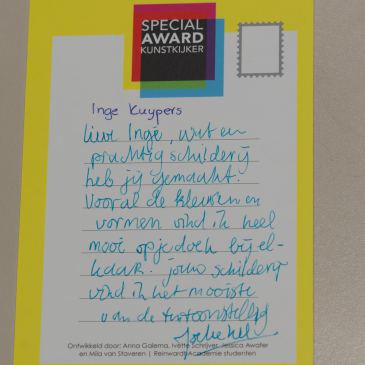 SPECIAL
AWARD
KUNSTKIJKER
Inge Kuypers
Lieve Inge, wat en
prachtig schilderij
heb jij gemaakt.
Vooral de kleuren en
vormen vind ik heel
mooi op je doek bij el-
kaar. jouw schilderij
vind ik het mooiste
van de tentoonstelling
Ontwikkeld door: Anna Galema, Ivette Schrijver, Jessica Awater
en Mila van Staveren | Reinwardt Academie studenten